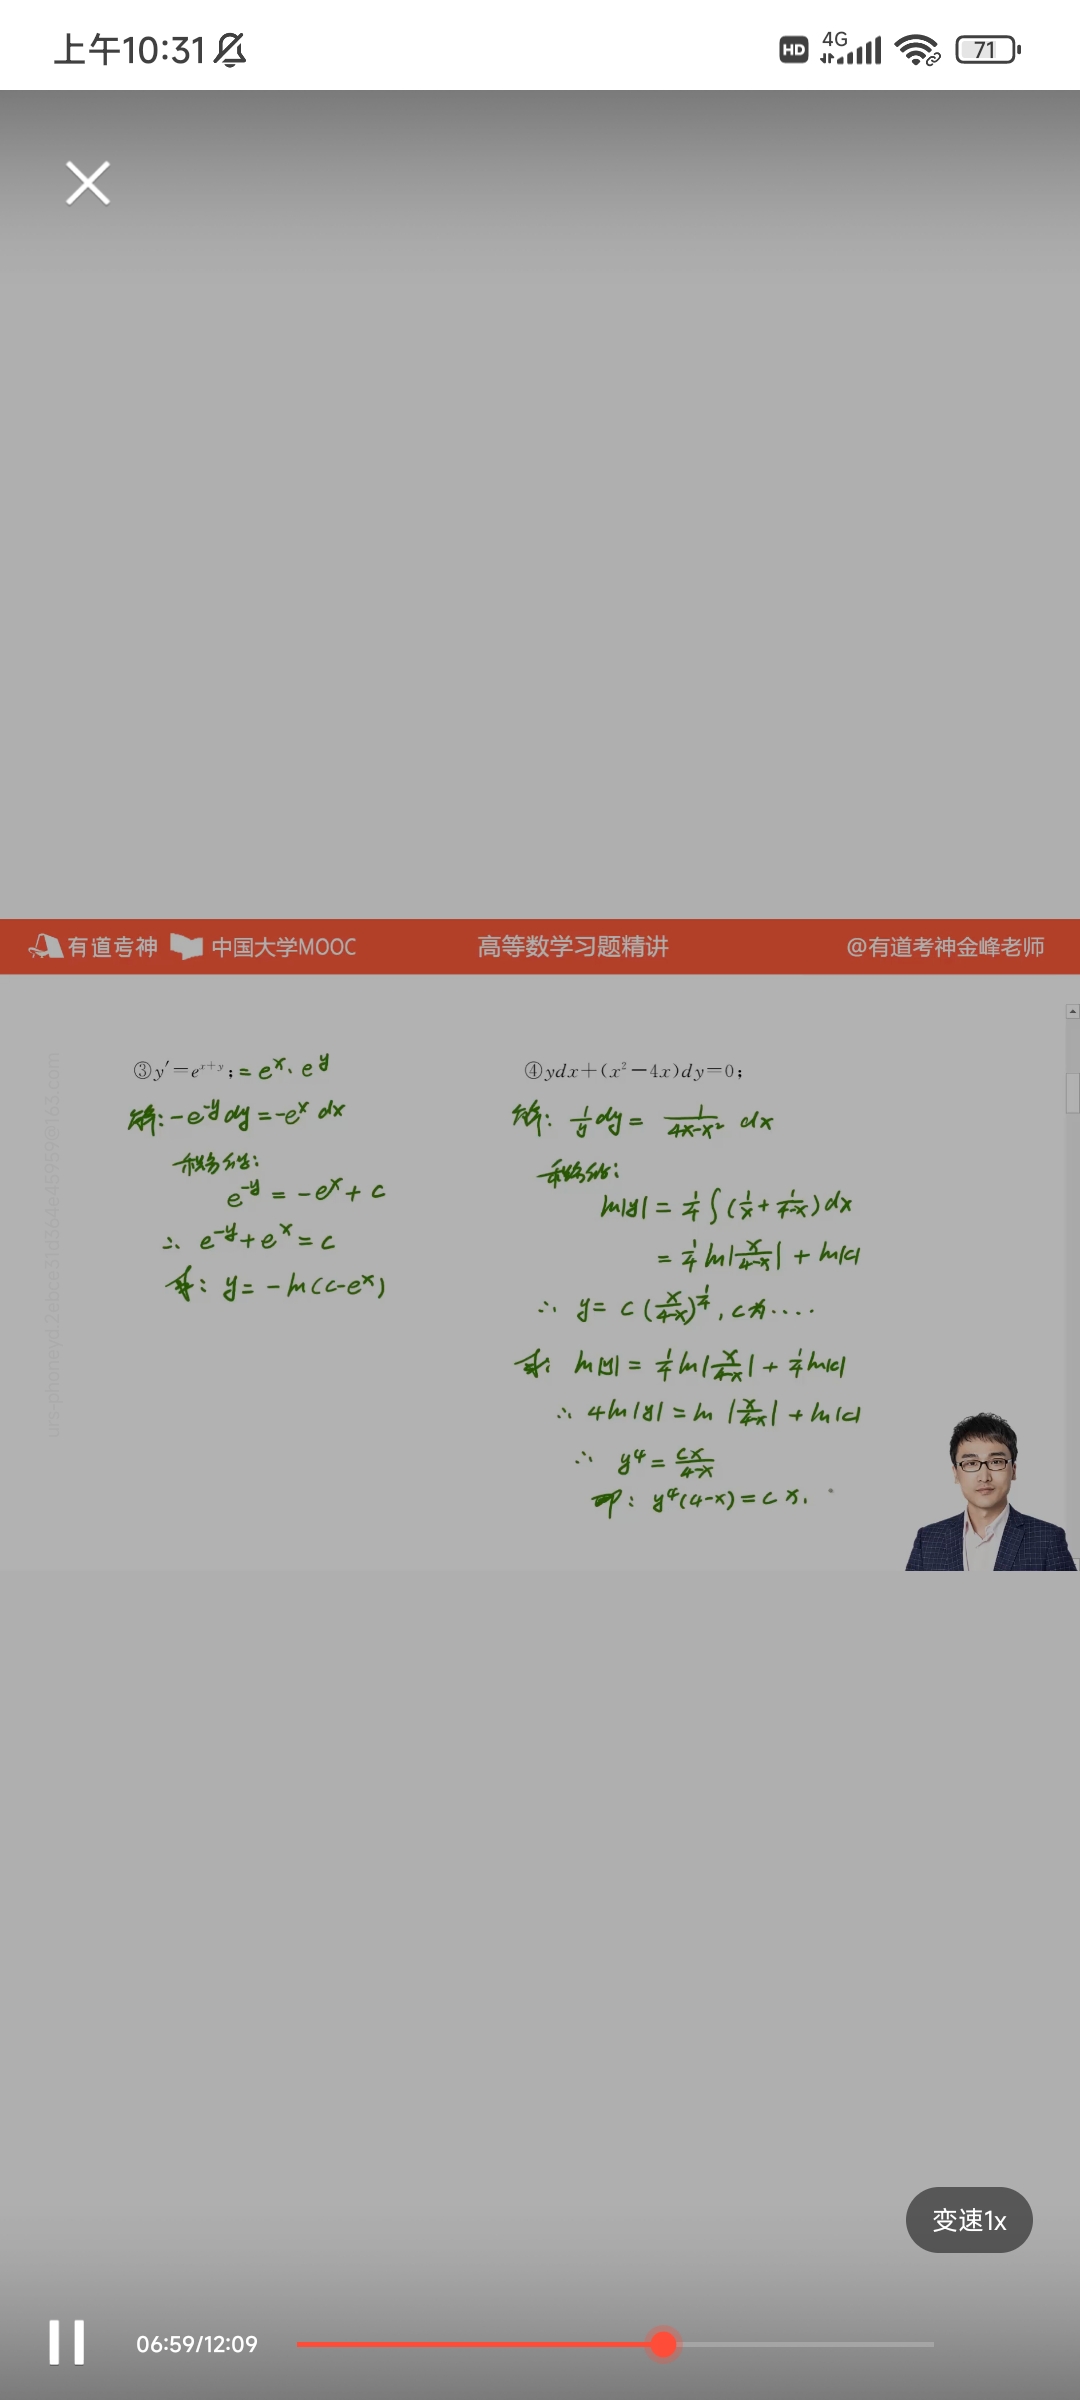 上午10:31 HD 4G 71
有道考神 中国大学MOOC 高等数学习题精讲 @有道考神金峰老师
③y′=e^{x+y}; = e^x · e^y
解: -e^{-y}dy = -e^x dx
积分得:
e^{-y} = -e^x + c
∴ e^{-y} + e^x = c
或: y = -ln(c-e^x)
④ydx+(x²-4x)dy=0;
解: 1/y dy = 1/(4x-x²) dx
积分得:
ln|y| = 1/4 ∫(1/x + 1/(4-x))dx
= 1/4 ln|x/(4-x)| + ln|c|
∴ y = c(x/(4-x))^{1/4}, c为....
或: ln|y| = 1/4 ln|x/(4-x)| + 1/4 ln|c|
∴ 4ln|y| = ln|x/(4-x)| + ln|c|
∴ y⁴ = cx/(4-x)
即: y⁴(4-x) = cx.
变速1x
06:59/12:09